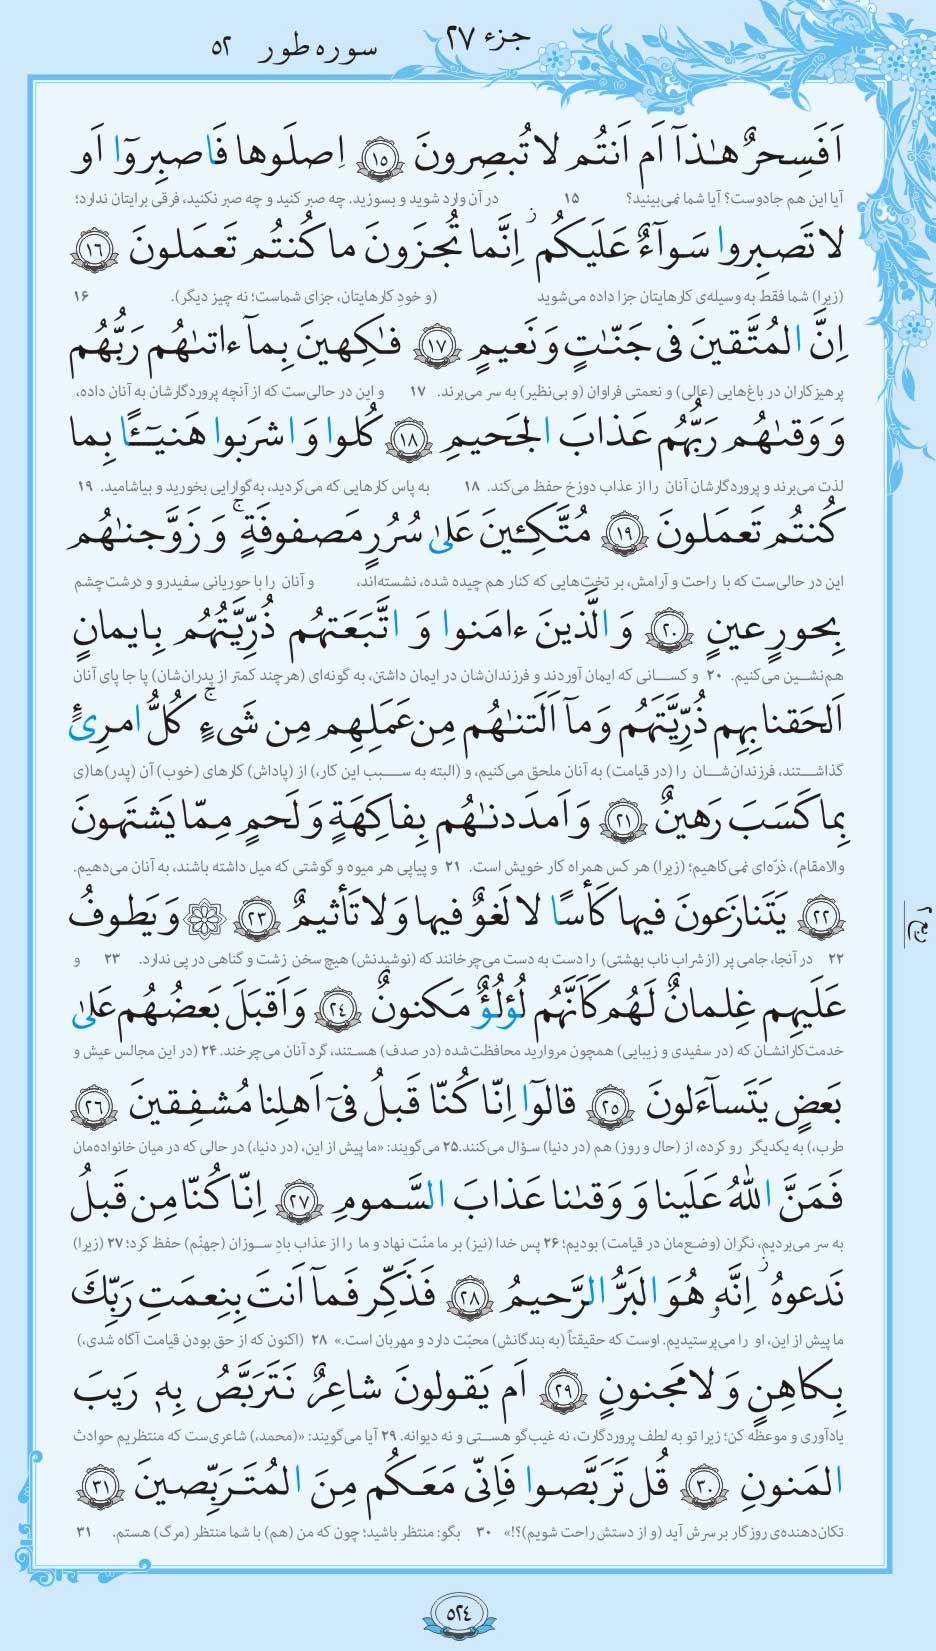 جزء ۲۷ سوره طور ۵۲
اَفَسِحرٌ هٰذآ اَم اَنتُم لا تُبصِرونَ ﴿۱۵﴾ اِصلَوها فَاصبِروٓا اَو
آیا این هم جادوست؟ آیا شما نمی‌بینید؟ ۱۵ در آن وارد شوید و بسوزید. چه صبر کنید و چه صبر نکنید، فرقی برایتان ندارد؛
لا تَصبِروا سَوآءٌ عَلَيكُم ۖ اِنَّما تُجزَونَ ما كُنتُم تَعمَلونَ ﴿۱۶﴾
(زیرا) شما فقط به وسیله‌ی کارهایتان جزا داده می‌شوید (و خودِ کارهایتان، جزای شماست؛ نه چیز دیگر). ۱۶
اِنَّ المُتَّقينَ فى جَنّٰتٍ وَ نَعيمٍ ﴿۱۷﴾ فٰكِهينَ بِمآ ءاتىٰهُم رَبُّهُم
پرهیزکاران در باغ‌هایی (عالی) و نعمتی فراوان (و بی‌نظیر) به سر می‌برند. ۱۷ و این در حالی‌ست که از آنچه پروردگارشان به آنان داده،
وَ وَقىٰهُم رَبُّهُم عَذابَ الجَحيمِ ﴿۱۸﴾ كُلوا وَ اشرَبوا هَنيٓـًٔا بِما
لذت می‌برند و پروردگارشان آنان را از عذاب دوزخ حفظ می‌کند. ۱۸ به پاس کارهایی که می‌کردید، به‌گوارایی بخورید و بیاشامید. ۱۹
كُنتُم تَعمَلونَ ﴿۱۹﴾ مُتَّكِـٔينَ عَلىٰ سُرُرٍ مَصفوفَةٍ ۚ وَ زَوَّجنٰهُم
این در حالی‌ست که با راحت و آرامش، بر تخت‌هایی که کنار هم چیده شده، نشسته‌اند، و آنان را با حوریانی سفیدرو و درشت‌چشم
بِحورٍ عينٍ ﴿۲۰﴾ وَ الَّذينَ ءامَنوا وَ اتَّبَعَتهُم ذُرِّيَّتُهُم بِايمانٍ
هم‌نشین می‌کنیم. ۲۰ و کسانی که ایمان آوردند و فرزندان‌شان در ایمان داشتن، به گونه‌ای (هرچند کمتر از پدران‌شان) پا جا پای آنان
اَلحَقنا بِهِم ذُرِّيَّتَهُم وَ مآ اَلَتنٰهُم مِن عَمَلِهِم مِن شَىءٍ ۚ كُلُّ امرِئٍ
گذاشتند، فرزندان‌شان را (در قیامت) به آنان ملحق می‌کنیم، و (البته به سبب این کار،) از (پاداش) کارهای (خوب) آن (پدر)ها(ی
بِما كَسَبَ رَهينٌ ﴿۲۱﴾ وَ اَمدَدنٰهُم بِفاكِهَةٍ وَ لَحمٍ مِمّا يَشتَهونَ
والامقام)، ذرّه‌ای نمی‌کاهیم؛ (زیرا) هر کس همراه کار خویش است. ۲۱ و پیاپی هر میوه و گوشتی که میل داشته باشند، به آنان می‌دهیم.
﴿۲۲﴾ يَتَنازَعونَ فيها كَأسًا لا لَغوٌ فيها وَ لا تَأثيمٌ ﴿۲۳﴾ وَ يَطوفُ
۲۲ در آنجا، جامی پر (از شراب ناب بهشتی) را دست به دست می‌چرخانند که (نوشیدنش) هیچ سخن زشت و گناهی در پی ندارد. ۲۳ و
ربع ۲
عَلَيهِم غِلمانٌ لَهُم كَاَنَّهُم لُؤلُؤٌ مَكنونٌ ﴿۲۴﴾ وَ اَقبَلَ بَعضُهُم عَلىٰ
خدمت‌کارانشان که (در سفیدی و زیبایی) همچون مروارید محافظت‌شده (در صدف) هستند، گرد آنان می‌چرخند. ۲۴ (در این مجالس عیش و
بَعضٍ يَتَسآءَلونَ ﴿۲۵﴾ قالوٓا اِنّا كُنّا قَبلُ فىٓ اَهلِنا مُشفِقينَ ﴿۲۶﴾
طرب،) به یکدیگر رو کرده، از (حال و روز) هم (در دنیا) سؤال می‌کنند. ۲۵ می‌گویند: «ما پیش از این، (در دنیا،) در حالی که در میان خانواده‌مان
فَمَنَّ اللّٰهُ عَلَينا وَ وَقىٰنا عَذابَ السَّمومِ ﴿۲۷﴾ اِنّا كُنّا مِن قَبلُ
به سر می‌بردیم، نگران (وضع‌مان در قیامت) بودیم؛ ۲۶ پس خدا (نیز) بر ما منّت نهاد و ما را از عذاب بادِ سوزان (جهنّم) حفظ کرد؛ ۲۷ (زیرا)
نَدعوهُ ۖ اِنَّهٗ هُوَ البَرُّ الرَّحيمُ ﴿۲۸﴾ فَذَكِّر فَمآ اَنتَ بِنِعمَتِ رَبِّكَ
ما پیش از این، او را می‌پرستیدیم. اوست که حقیقتاً (به بندگانش) محبّت دارد و مهربان است.» ۲۸ (اکنون که از حق بودن قیامت آگاه شدی،)
بِكاهِنٍ وَ لا مَجنونٍ ﴿۲۹﴾ اَم يَقولونَ شاعِرٌ نَتَرَبَّصُ بِهٖ رَيبَ
یادآوری و موعظه کن؛ زیرا تو به لطف پروردگارت، نه غیب‌گو هستی و نه دیوانه. ۲۹ آیا می‌گویند: «(محمد،) شاعری‌ست که منتظریم حوادث
المَنونِ ﴿۳۰﴾ قُل تَرَبَّصوا فَاِنّى مَعَكُم مِنَ المُتَرَبِّصينَ ﴿۳۱﴾
تکان‌دهنده‌ی روزگار بر سرش آید (و از دستش راحت شویم)؟!» ۳۰ بگو: منتظر باشید؛ چون که من (هم) با شما منتظر (مرگ) هستم. ۳۱
۵۲۴